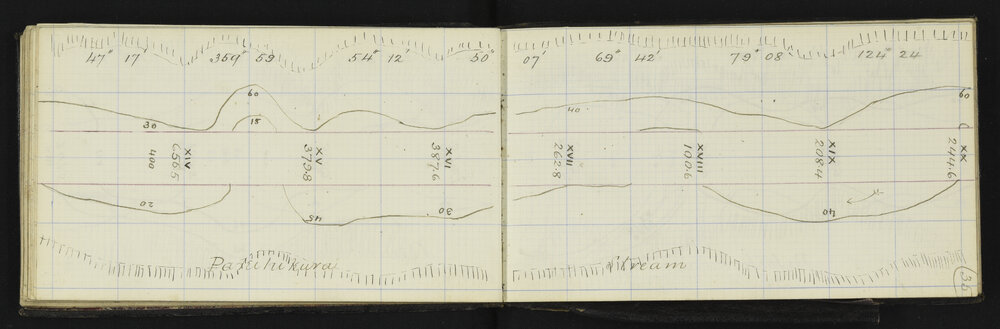 47° 17' 359° 59' 54° 12' 50° 07' 69° 42' 79° 08' 124° 24
60
30 15 40 60
400 656.5 XIV 373.8 XV 387.6 XVI 262.8 XVII 100.6 XVIII 208.4 XIX 244.6 XX
20 45 30 40
Patuhikura Stream